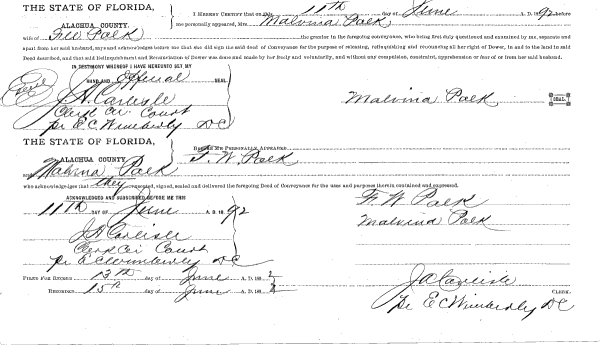 THE STATE OF FLORIDA,
ALACHUA COUNTY.
I HEREBY CERTIFY that on this 11th day of June A. D. 1892 before
me personally appeared, Mrs Malvina Polk
wife of F. W. Polk the grantor in the foregoing conveyance, who being first duly questioned and examined by me, separate and
apart from her said husband, says and acknowledges before me that she did sign the said deed of Conveyance for the purpose of releasing, relinquishing and renouncing all her right of Dower, in and to the land in said
Deed described, and that said Relinquishment and Renunciation of Dower was done and made by her freely and voluntarily, and without any compulsion, constraint, apprehension or fear of or from her said husband.
IN TESTIMONY WHEREOF I HAVE HEREUNTO SET MY
HAND AND Official SEAL
J. A. Carlisle
Clerk Cir. Court
Pr E C Wimberly DC
Malvina Polk SEAL.
THE STATE OF FLORIDA,
ALACHUA COUNTY.
BEFORE ME PERSONALLY APPEARED F. W. Polk
and Malvina Polk
who acknowledges that they executed, signed, sealed and delivered the foregoing Deed of Conveyance for the uses and purposes therein contained and expressed.
ACKNOWLEDGED AND SUBSCRIBED BEFORE ME THIS
11th DAY OF June A. D. 1892
F. W Polk
Malvina Polk
J A Carlisle
Clerk Cir Court
Pr E C Wimberly DC
FILED FOR RECORD 13th day of June A. D. 1892
RECORDED 15th day of June A. D. 1892
J A Carlisle CLERK.
Pr E C Wimberly DC